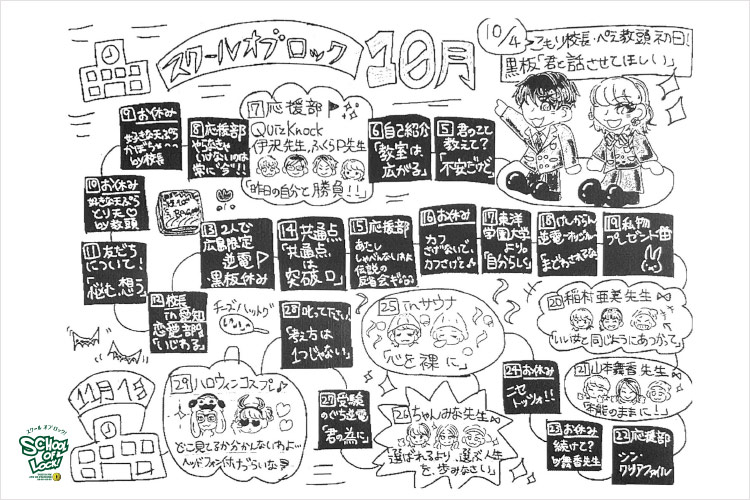 スクールオブロック
10月
10/4
こもり校長・ぺえ教頭 初日!
黒板「君と話させてほしい」
5 君のこと
教えて?
「不安だけど」
6 自己紹介
「教室は
広がる」
7 応援部
QuizKnock
伊沢先生,ふくらP先生
「昨日の自分と勝負!!」
8 応援部
やらなきゃ
いけないのは
常に"今"!!
9 お休み
好きな天ぷら
かぼちゃ
by校長
10 お休み
好きな天ぷら
とり天♡
by教頭
11 友だち
について!
「悩む、想う」
12 校長
in 愛知
恋愛部門
「いじわる」
13 2人で
広島限定
逆電
黒板休み
14 共通点
「共通点
は
突破口」
15 応援部
あたし
伝説の
16 お休み
カフ
さげないで、
カフさげて♪
17 東洋
学園大学
より。
「自分らしく」
18
逆電
19 私物
プレゼント
20 稲村亜美先生
21 山本舞香先生
「本能のままに!」
22 応援部
シン・
クリアファイル
23 お休み
続けて?
by舞香先生
24 お休み
ニセ
トッツォ!!
25 inサウナ
「心を裸に」
26 ちゃんみな先生
「選ばれるより、選ぶ人生
を、歩みなさい」
27 受験
のぐち逆電
「君の為に」
28 叱って下さい
「考え方は
1つじゃない」
チーズハットグ
29 ハロウィンコスプレ♪
どこ見てるか分かんないわよ…
ヘッドフォン付けづらいな
11月1日
スクールオブロック!
SCHOOL
OF
LOCK!